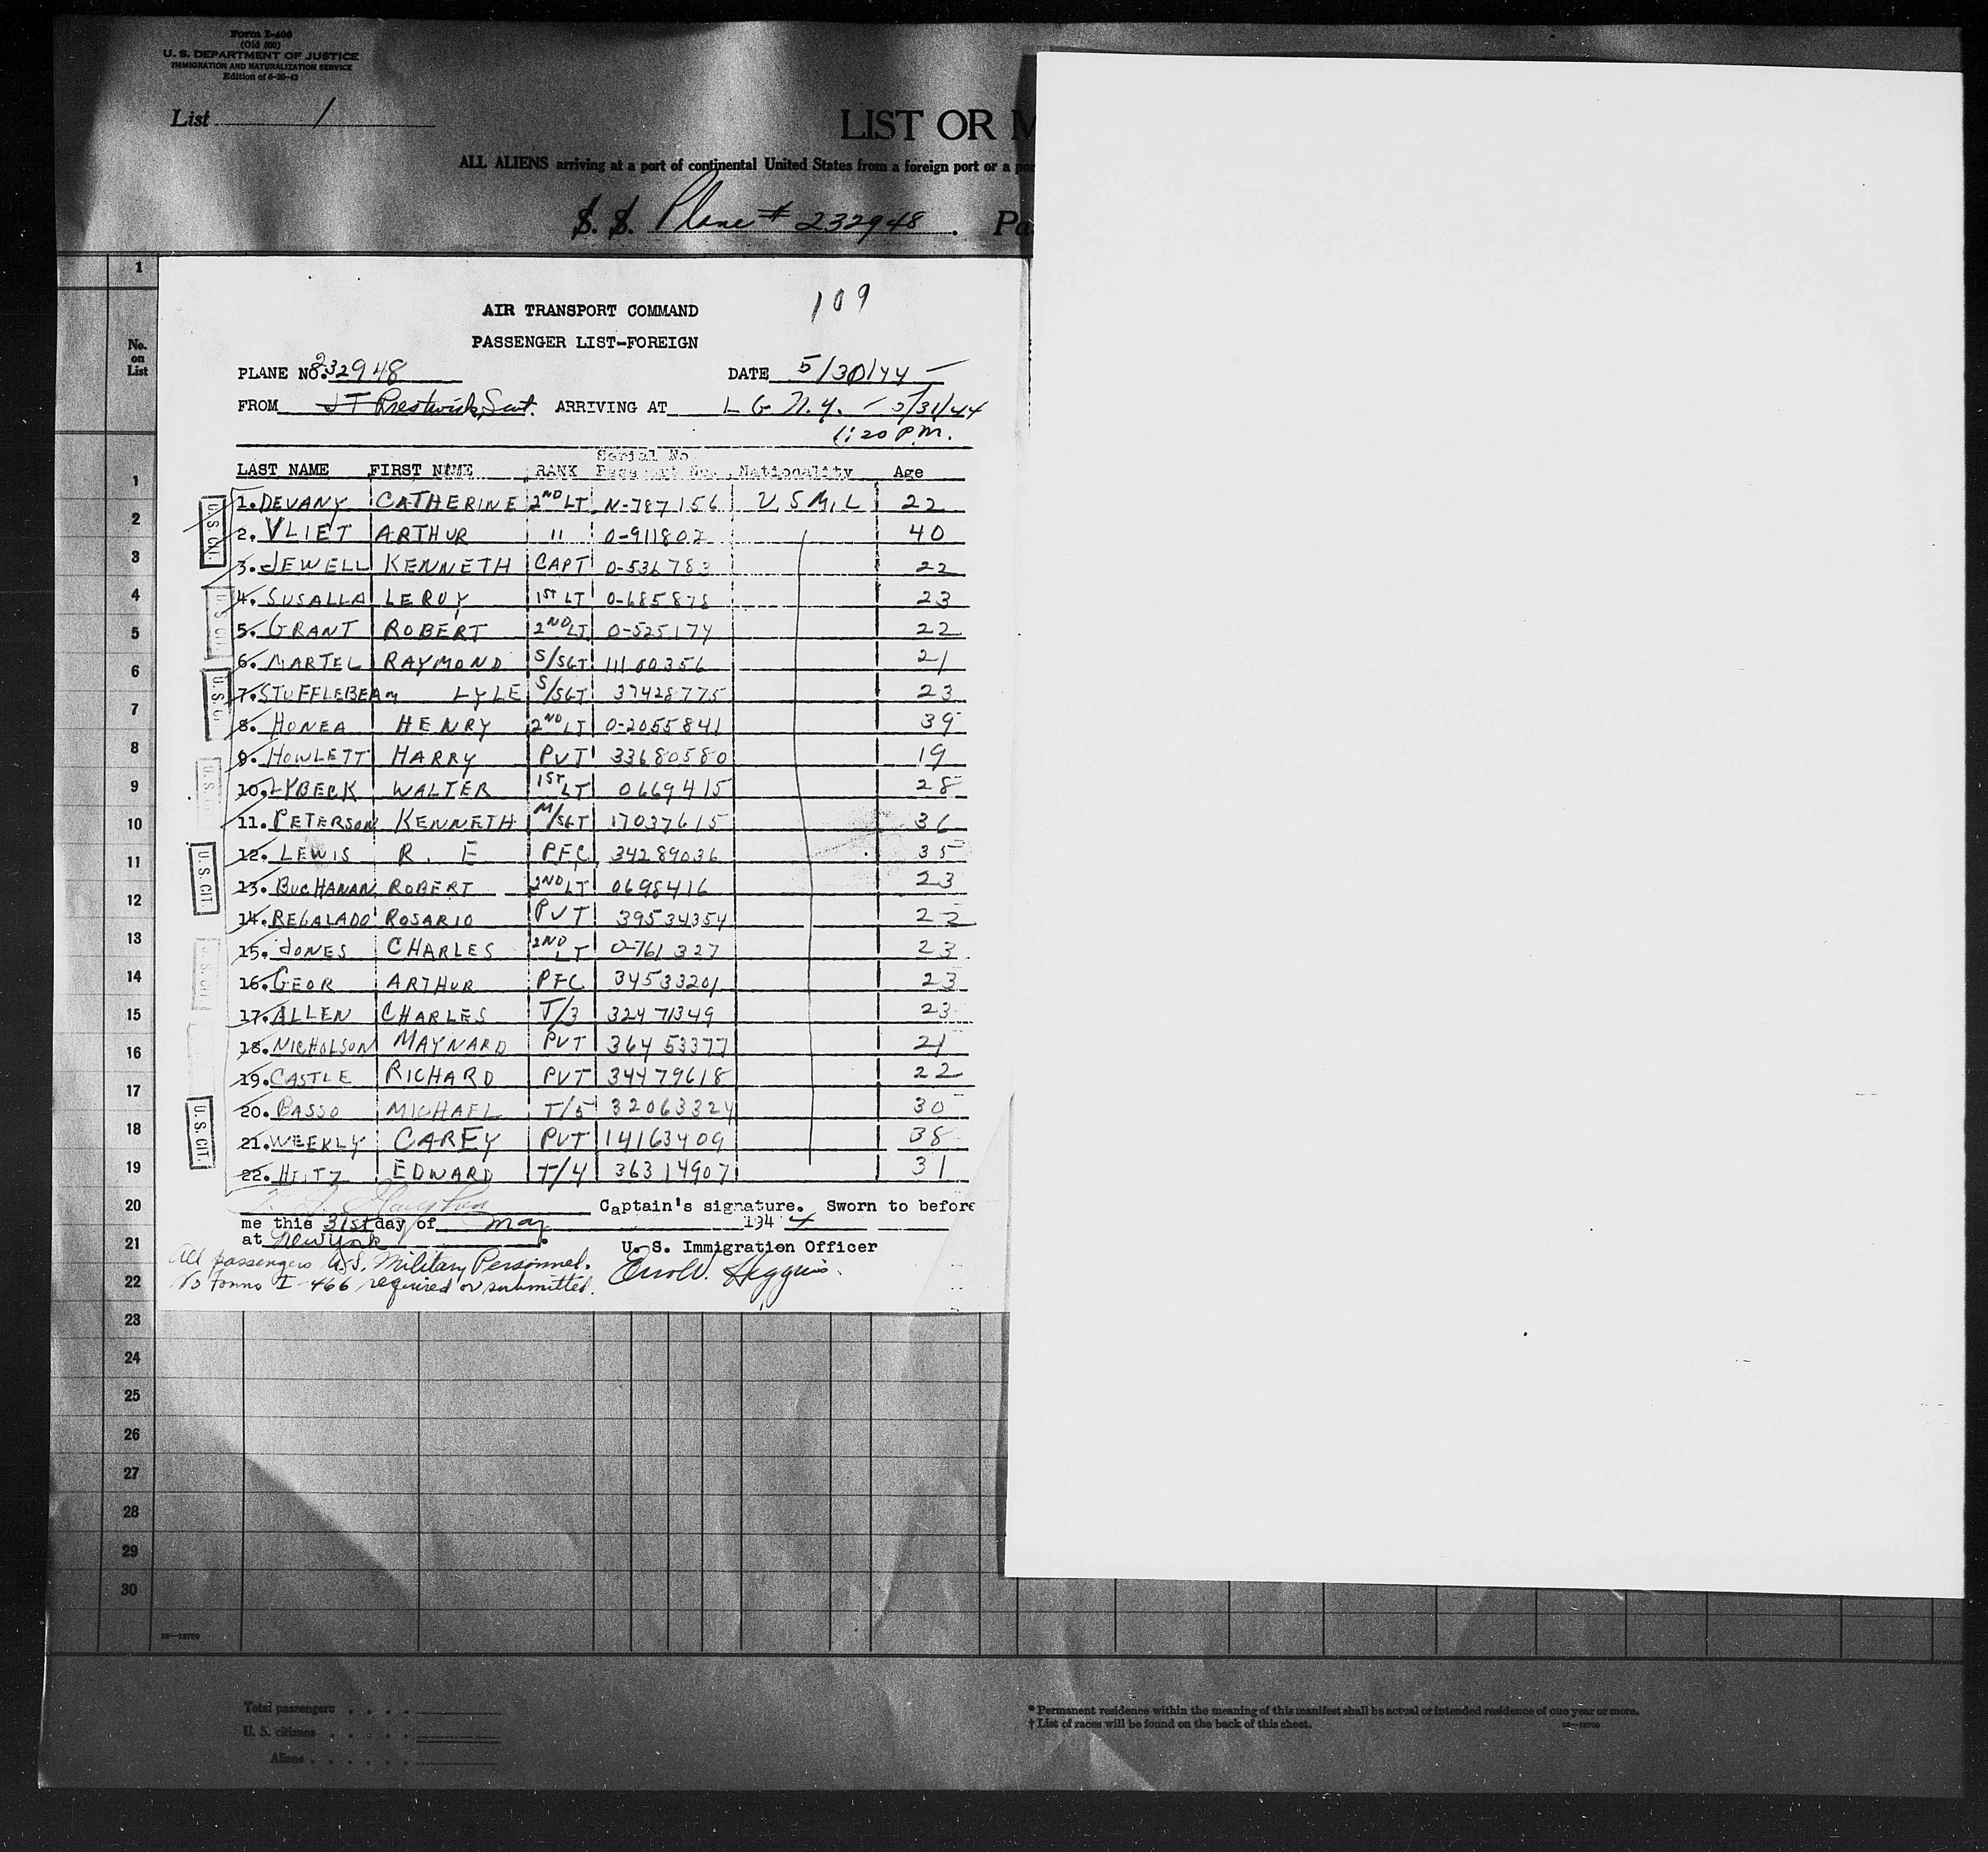 Form I-400
(Old 500)
U. S. DEPARTMENT OF JUSTICE
IMMIGRATION AND NATURALIZATION SERVICE
Edition of 6-20-43
List 1
LIST OR M
ALL ALIENS arriving at a port of continental United States from a foreign port or a por
S. S. Plane # 232948. Pa
1
No. on List
109
AIR TRANSPORT COMMAND
PASSENGER LIST-FOREIGN
PLANE NO. 232948 DATE 5/30/44
FROM Prestwick, Scot. ARRIVING AT L G. N.Y. - 5/31/44
1:20 P.M.
Serial No.
LAST NAME FIRST NAME RANK Passport No. Nationality Age
1. DEVANY CATHERINE 2ND LT N-787156 U.S MIL 22
2. VLIET ARTHUR " 0-911802 40
3. JEWELL KENNETH CAPT 0-536783 22
4. SUSALLA LEROY 1ST LT 0-685878 23
5. GRANT ROBERT 2ND LT 0-525174 22
6. MARTEL RAYMOND S/SGT 11100356 21
7. STUFFLEBEAM LYLE S/SGT 37428775 23
8. HONEA HENRY 2ND LT 0-2055841 39
9. HOWLETT HARRY PVT 33680580 19
10. LYBECK WALTER 1ST LT 0669415 28
11. PETERSON KENNETH M/SGT 17037615 36
12. LEWIS R. E PFC 34289036 35
13. BUCHANAN ROBERT 2ND LT 0698416 23
14. REGALADO ROSARIO PVT 39534354 22
15. JONES CHARLES 2ND LT 0-761327 23
16. GEOR ARTHUR PFC 34533201 23
17. ALLEN CHARLES T/3 32471349 23
18. NICHOLSON MAYNARD PVT 36453377 21
19. CASTLE RICHARD PVT 34479618 22
20. BASSO MICHAEL T/5 32063324 30
21. WEEKLY CAREY PVT 14163409 38
22. HEITZ EDWARD T/4 36314907 31
U.S. CIT.
U.S. CIT.
U.S. CIT.
U.S. CIT.
U.S. CIT.
U.S. CIT.
U.S. CIT.
Captain's signature. Sworn to before
me this 31st day of May 1944
at New York.
U. S. Immigration Officer
All passengers U.S. Military Personnel.
No forms I-466 required or submitted.
Errol W. Higgins.
1
2
3
4
5
6
7
8
9
10
11
12
13
14
15
16
17
18
19
20
21
22
23
24
25
26
27
28
29
30
Total passengers
U. S. citizens
Aliens
* Permanent residence within the meaning of this manifest shall be actual or intended residence of one year or more.
† List of races will be found on the back of this sheet.